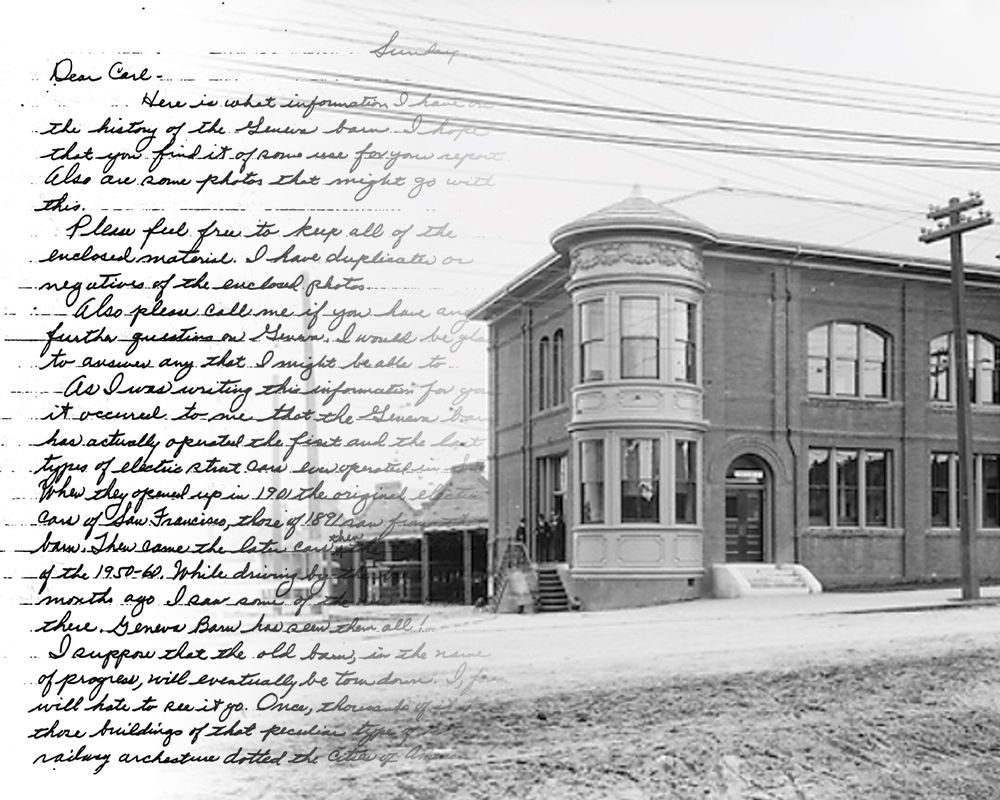 Sunday
Dear Carl-
Here is what information I have on
the history of the Geneva barn. I hope
that you find it of some use for your report
Also are some photos that might go with
this.
Please feel free to keep all of the
enclosed material. I have duplicate or
negatives of the enclosed photos.
Also please call me if you have any
further questions on Geneva. I would be gla
to answer any that I might be able to
As I was writing this information for you
it occured to me that the Geneva barn
has actually operated the first and the last
types of electric street cars ever operated in
When they opened up in 1901 the original electric
cars of San Francisco, those of 1891 saw from the
barn. Then came the later cars then the
of the 1950-60. While driving by
months ago I saw some of the
there. Geneva Barn has seen them all!
I suppose that the old barn, in the name
of progress, will eventually be torn down. I, for
will hate to see it go. Once, thousands of
those buildings of that peculiar type of
railway archesture dotted the Cities of America